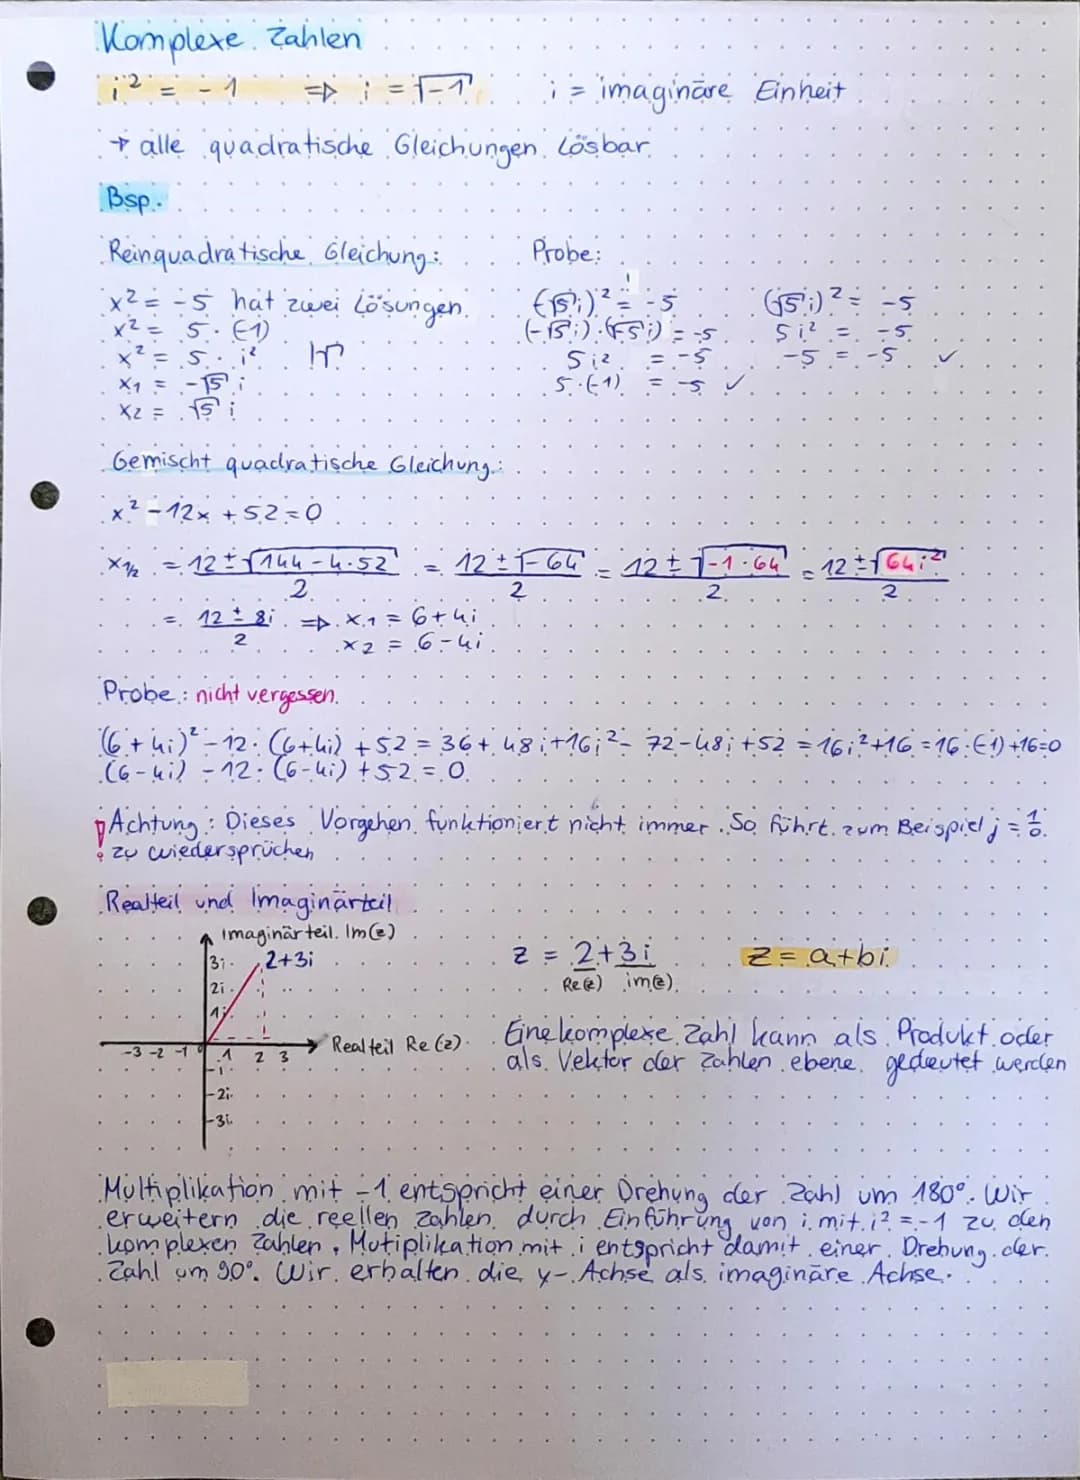 Komplexe Zahlen
i² = -1 ⇒ i = √-1 i = imaginäre Einheit
→ alle quadratische Gleichungen lösbar
Bsp.
Reinquadratische Gleichung: Probe:
x² = -5 hat zwei Lösungen (-√5 i)² = -5 (√5 i)² = -5
x² = 5·(-1) (-√5 i)·(-√5 i) = -5 5i² = -5
x² = 5·i² |√ 5i² = -5 -5 = -5 ✓
x₁ = -√5 i 5·(-1) = -5 ✓
x₂ = √5 i
Gemischt quadratische Gleichung:
x² - 12x + 52 = 0
x₁/₂ = (12 ± √(144 - 4·52))/2 = (12 ± √-64)/2 = (12 ± √(-1·64))/2 = (12 ± √(64i²))/2
= (12 ± 8i)/2 ⇒ x₁ = 6+4i
x₂ = 6-4i
Probe: nicht vergessen
(6+4i)² - 12·(6+4i) + 52 = 36 + 48i + 16i² - 72 - 48i + 52 = 16i² + 16 = 16·(-1) + 16 = 0
(6-4i) - 12·(6-4i) + 52 = 0
! Achtung: Dieses Vorgehen funktioniert nicht immer. So führt zum Beispiel j = 1/0
zu wiedersprüchen
Realteil und Imaginärteil
Imaginärteil Im(z)
3i 2+3i z = 2+3i z = a+bi
2i Re(z) im(z)
1i
-3 -2 -1 0 1 2 3 Realteil Re(z)
Eine komplexe Zahl kann als Produkt oder
als Vektor der Zahlen ebene gedeutet werden
-i
-2i
-3i
Multiplikation mit -1 entspricht einer Drehung der Zahl um 180°. Wir
erweitern die reellen Zahlen durch Einführung von i mit i² = -1 zu den
komplexen Zahlen. Mutiplikation mit i entspricht damit einer Drehung der
Zahl um 90°. Wir erhalten die y-Achse als imaginäre Achse.